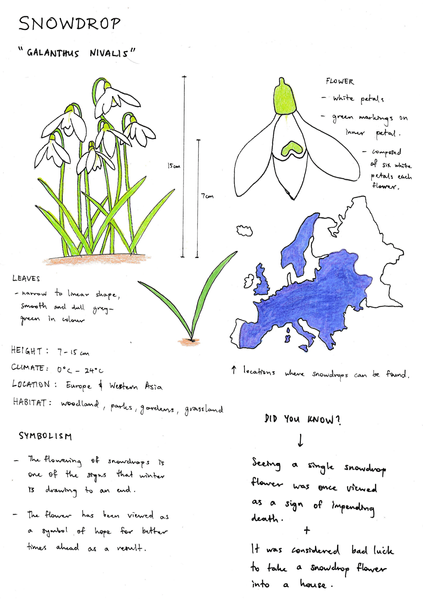 SNOWDROP
"GALANTHUS NIVALIS"
FLOWER
- white petals
- green markings on
inner petal.
- composed
of six white
petals each
flower.
15cm
7cm
LEAVES
- narrow to linear shape,
smooth and dull grey-
green in colour
HEIGHT: 7-15cm
CLIMATE: 0°C - 24°C
LOCATION: Europe & Western Asia
HABITAT: woodland, parks, gardens, grassland
↑ locations where snowdrops can be found.
SYMBOLISM
- The flowering of snowdrops is
one of the signs that winter
is drawing to an end.
- The flower has been viewed as
a symbol of hope for better
times ahead as a result.
DID YOU KNOW?
↓
Seeing a single snowdrop
flower was once viewed
as a sign of impending
death.
+
It was considered bad luck
to take a snowdrop flower
into a house.